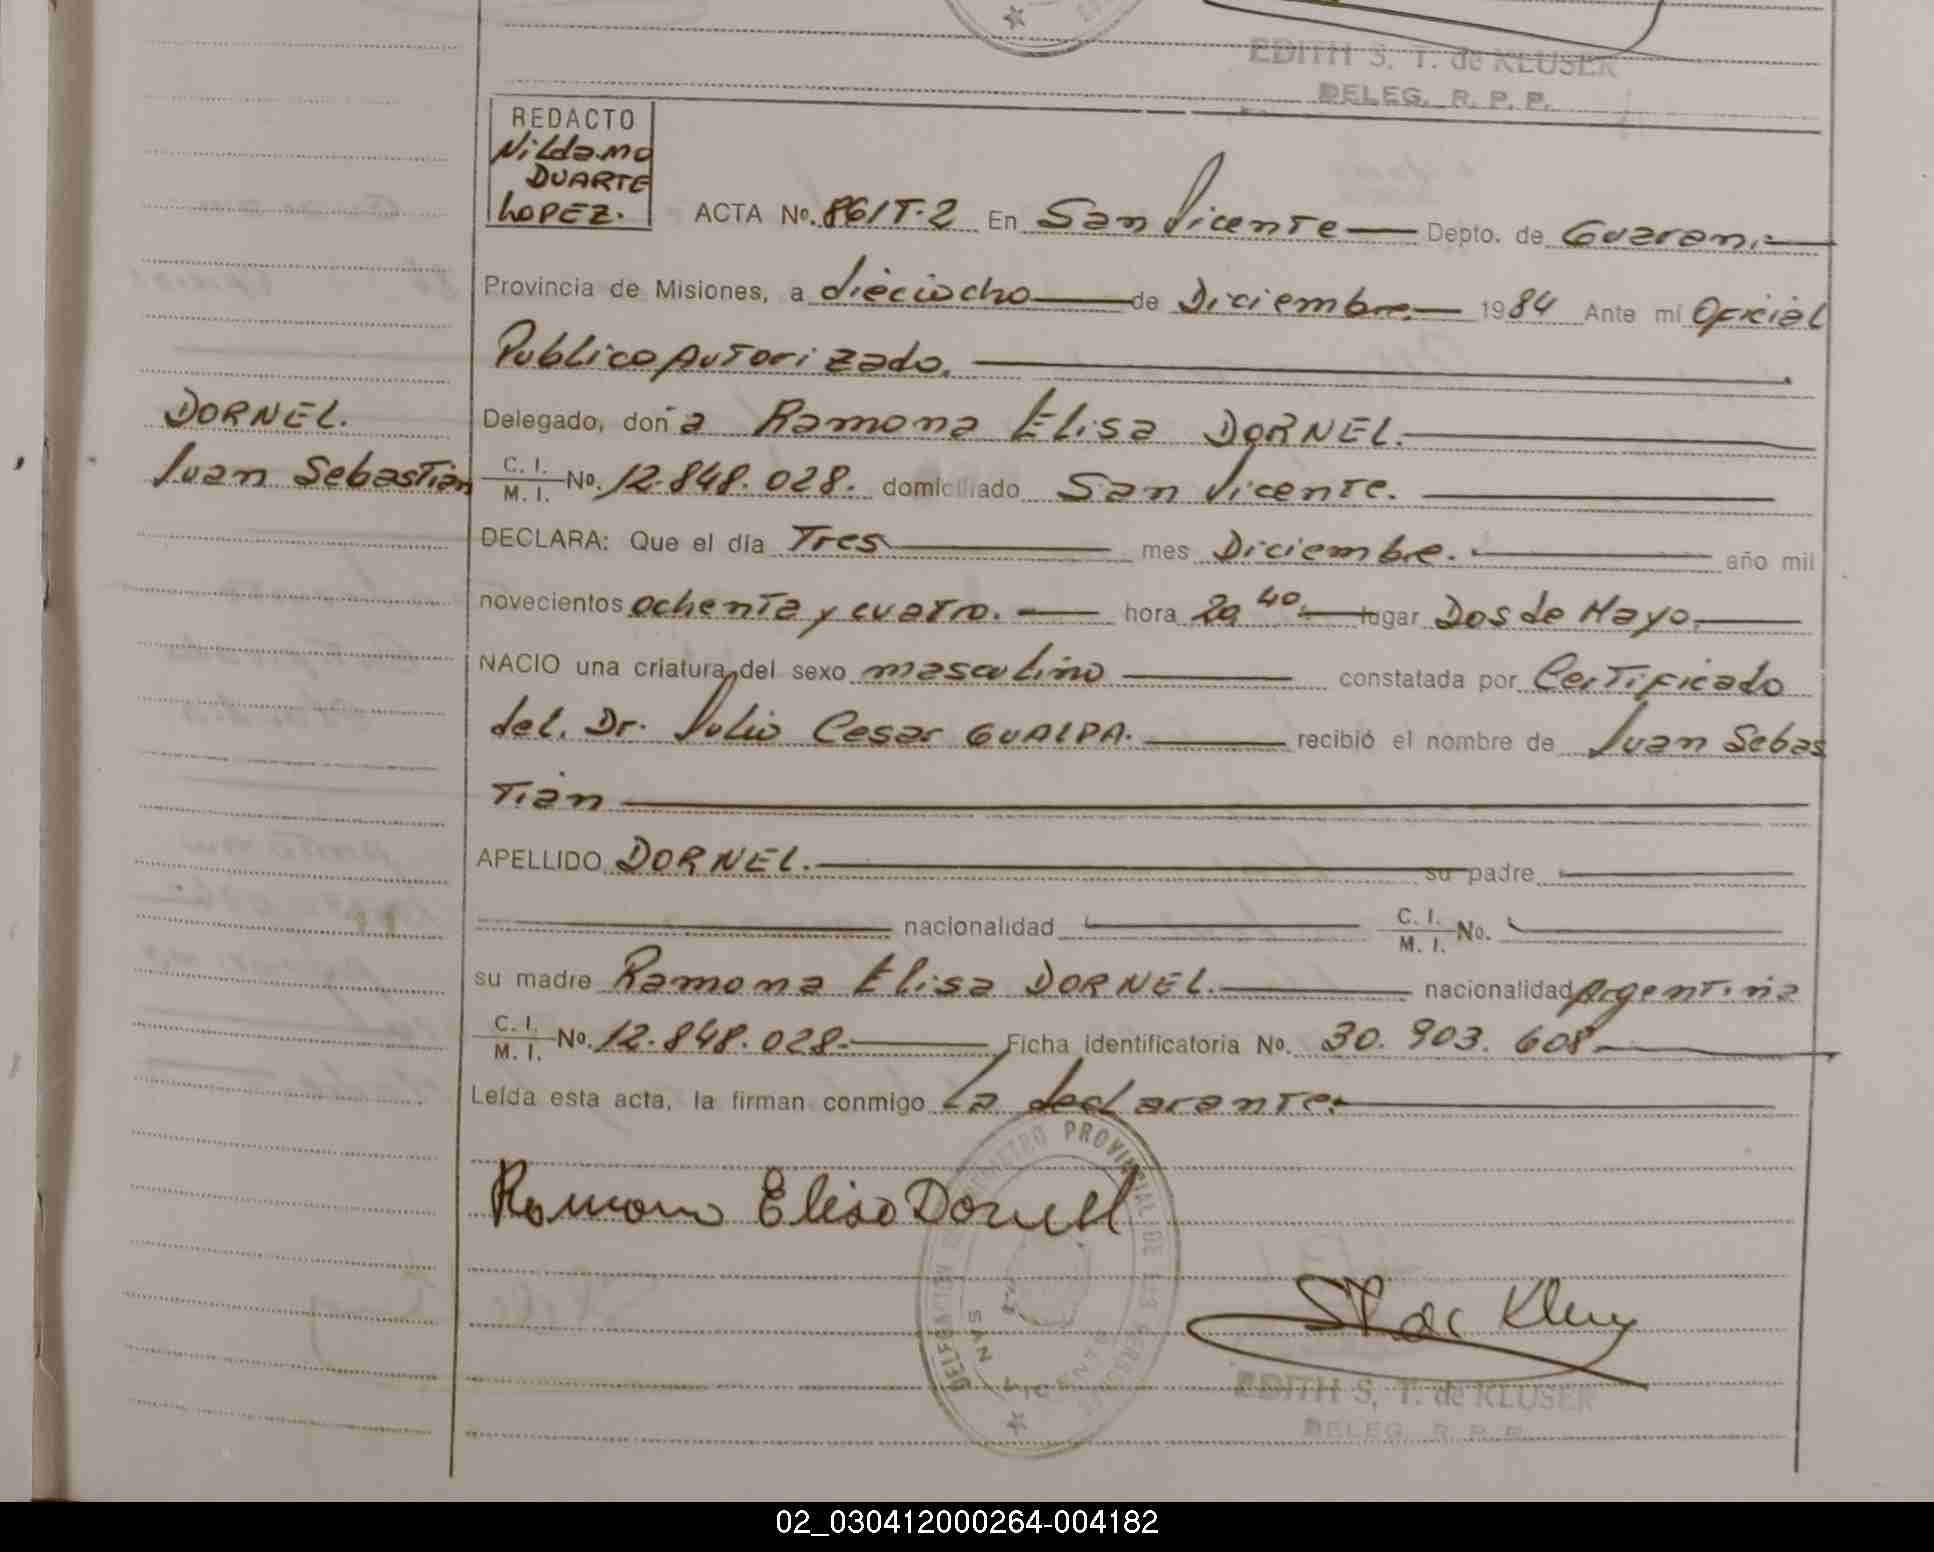 EDITH S. T. de KLUSER
DELEG. R. P. P.
REDACTO
Nilda MO
DUARTE
LOPEZ.
ACTA No. 861T-2 En San Vicente Depto. de Guarani
Provincia de Misiones, a dieciocho de Diciembre 1984 Ante mí Oficial
Publico Autorizado.
DORNEL.
Juan Sebastian
Delegado, doña Ramona Elisa DORNEL.
C. I. M. I. No. 12.848.028. domiciliado San Vicente.
DECLARA: Que el día Tres mes Diciembre. año mil
novecientos ochenta y cuatro. hora 20 40 lugar Dos de Mayo.
NACIO una criatura del sexo masculino constatada por Certificado
del. Dr. Julio Cesar GUALPA. recibió el nombre de Juan Sebas
Tian
APELLIDO DORNEL. su padre
nacionalidad C. I. M. I. No.
su madre Ramona Elisa DORNEL. nacionalidad Argentina
C. I. M. I. No. 12.848.028. Ficha identificatoria No. 30.903.608
Leída esta acta, la firman conmigo La declarante.
Ramona Elisa Dornell
DELEGACION REGISTRO PROVINCIAL DE LAS PERSONAS
SAN VICENTE
EDITH S. T. de KLUSER
DELEG. R. P. P.
02_030412000264-004182